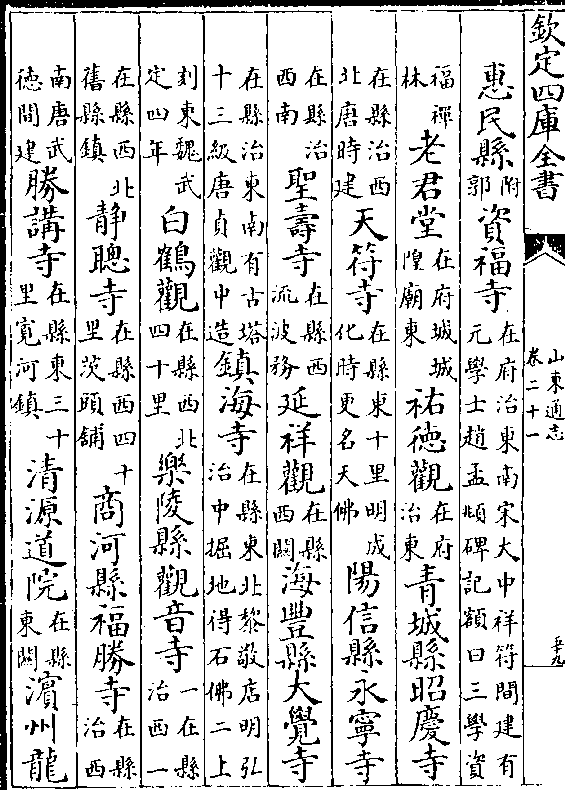 欽定四庫全書
山東通志
卷二十一
惠民縣附郭資福寺在府治東南宋大中祥符間建有元學士趙孟頫碑記額曰三學資
福禪林老君堂在府城城隍廟東祐德觀在府治東青城縣昭慶寺
在縣治西北唐時建天符寺在縣東十里明成化時更名天佛陽信縣永寧寺
在縣治西南聖壽寺在縣西流波務延祥觀在縣西關海豐縣大覺寺
在縣治東南有古塔十三級唐貞觀中造鎮海寺在縣東北黎敬店明弘治中掘地得石佛二上
刻東魏武定四年白鶴觀在縣西北四十里樂陵縣觀音寺一在縣治西一
在縣西北舊縣鎮静聰寺在縣西四十里茨頭鋪商河縣福勝寺在縣治西
南唐武德間建勝講寺在縣東三十里寛河鎮清源道院在縣東關濱州龍